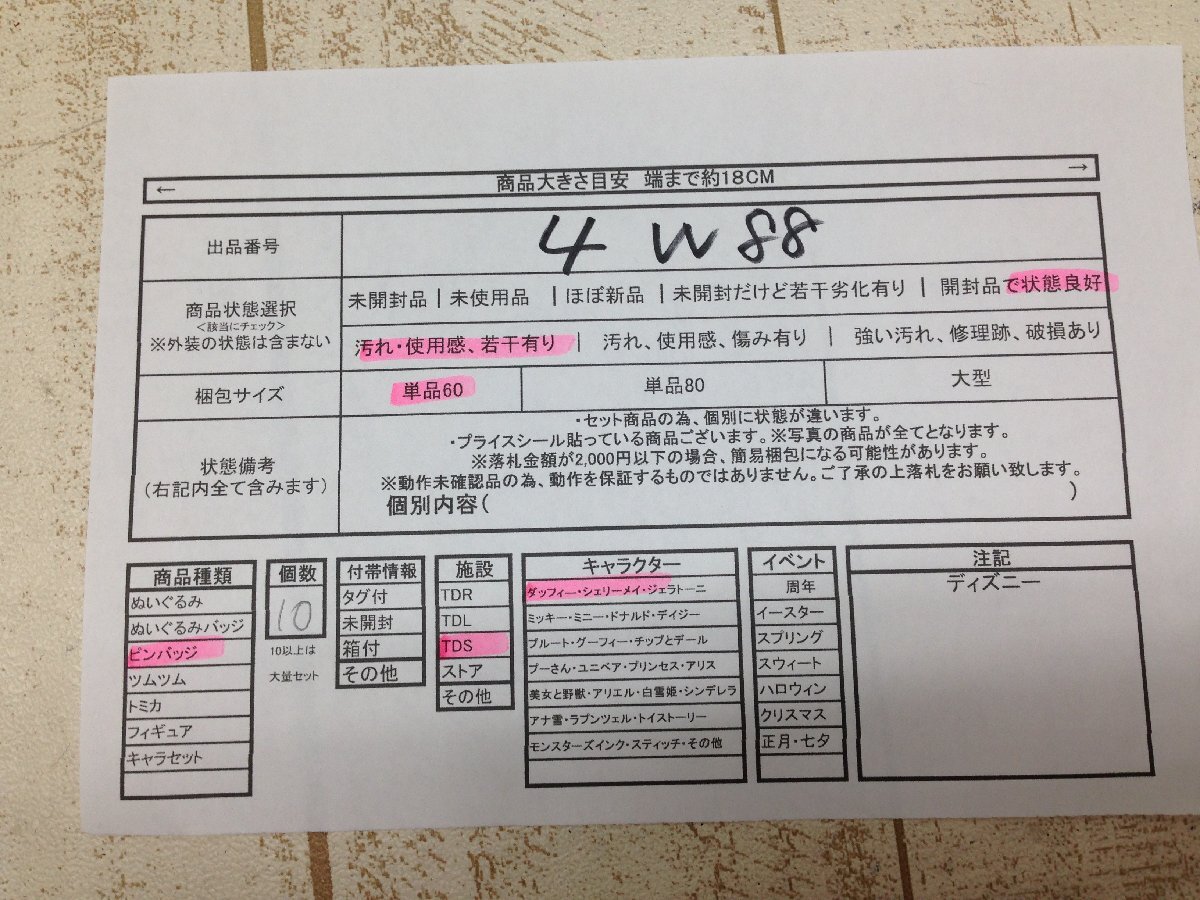 ← 商品大きさ目安 端まで約18CM →
出品番号
4 W 88
商品状態選択
<該当にチェック>
※外装の状態は含まない
未開封品 | 未使用品 | ほぼ新品 | 未開封だけど若干劣化有り | 開封品で状態良好
汚れ・使用感、若干有り | 汚れ、使用感、傷み有り | 強い汚れ、修理跡、破損あり
梱包サイズ
単品60
単品80
大型
状態備考
(右記内全て含みます)
・セット商品の為、個別に状態が違います。
・プライスシール貼っている商品ございます。※写真の商品が全てとなります。
※落札金額が2,000円以下の場合、簡易梱包になる可能性があります。
※動作未確認品の為、動作を保証するものではありません。ご了承の上落札をお願い致します。
個別内容( )
商品種類
ぬいぐるみ
ぬいぐるみバッジ
ピンバッジ
ツムツム
トミカ
フィギュア
キャラセット
個数
10
10以上は
大量セット
付帯情報
タグ付
未開封
箱付
その他
施設
TDR
TDL
TDS
ストア
その他
キャラクター
ダッフィー・シェリーメイ・ジェラトーニ
ミッキー・ミニー・ドナルド・デイジー
プルート・グーフィー・チップとデール
プーさん・ユニベア・プリンセス・アリス
美女と野獣・アリエル・白雪姫・シンデレラ
アナ雪・ラプンツェル・トイストーリー
モンスターズインク・スティッチ・その他
イベント
周年
イースター
スプリング
スウィート
ハロウィン
クリスマス
正月・七夕
注記
ディズニー